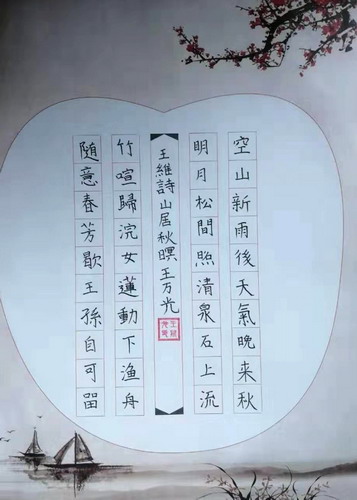 空山新雨後天氣晚来秋
明月松間照清泉石上流
王維詩山居秋暝王万光
竹喧歸浣女蓮動下渔舟
随意春芳歇王孫自可留